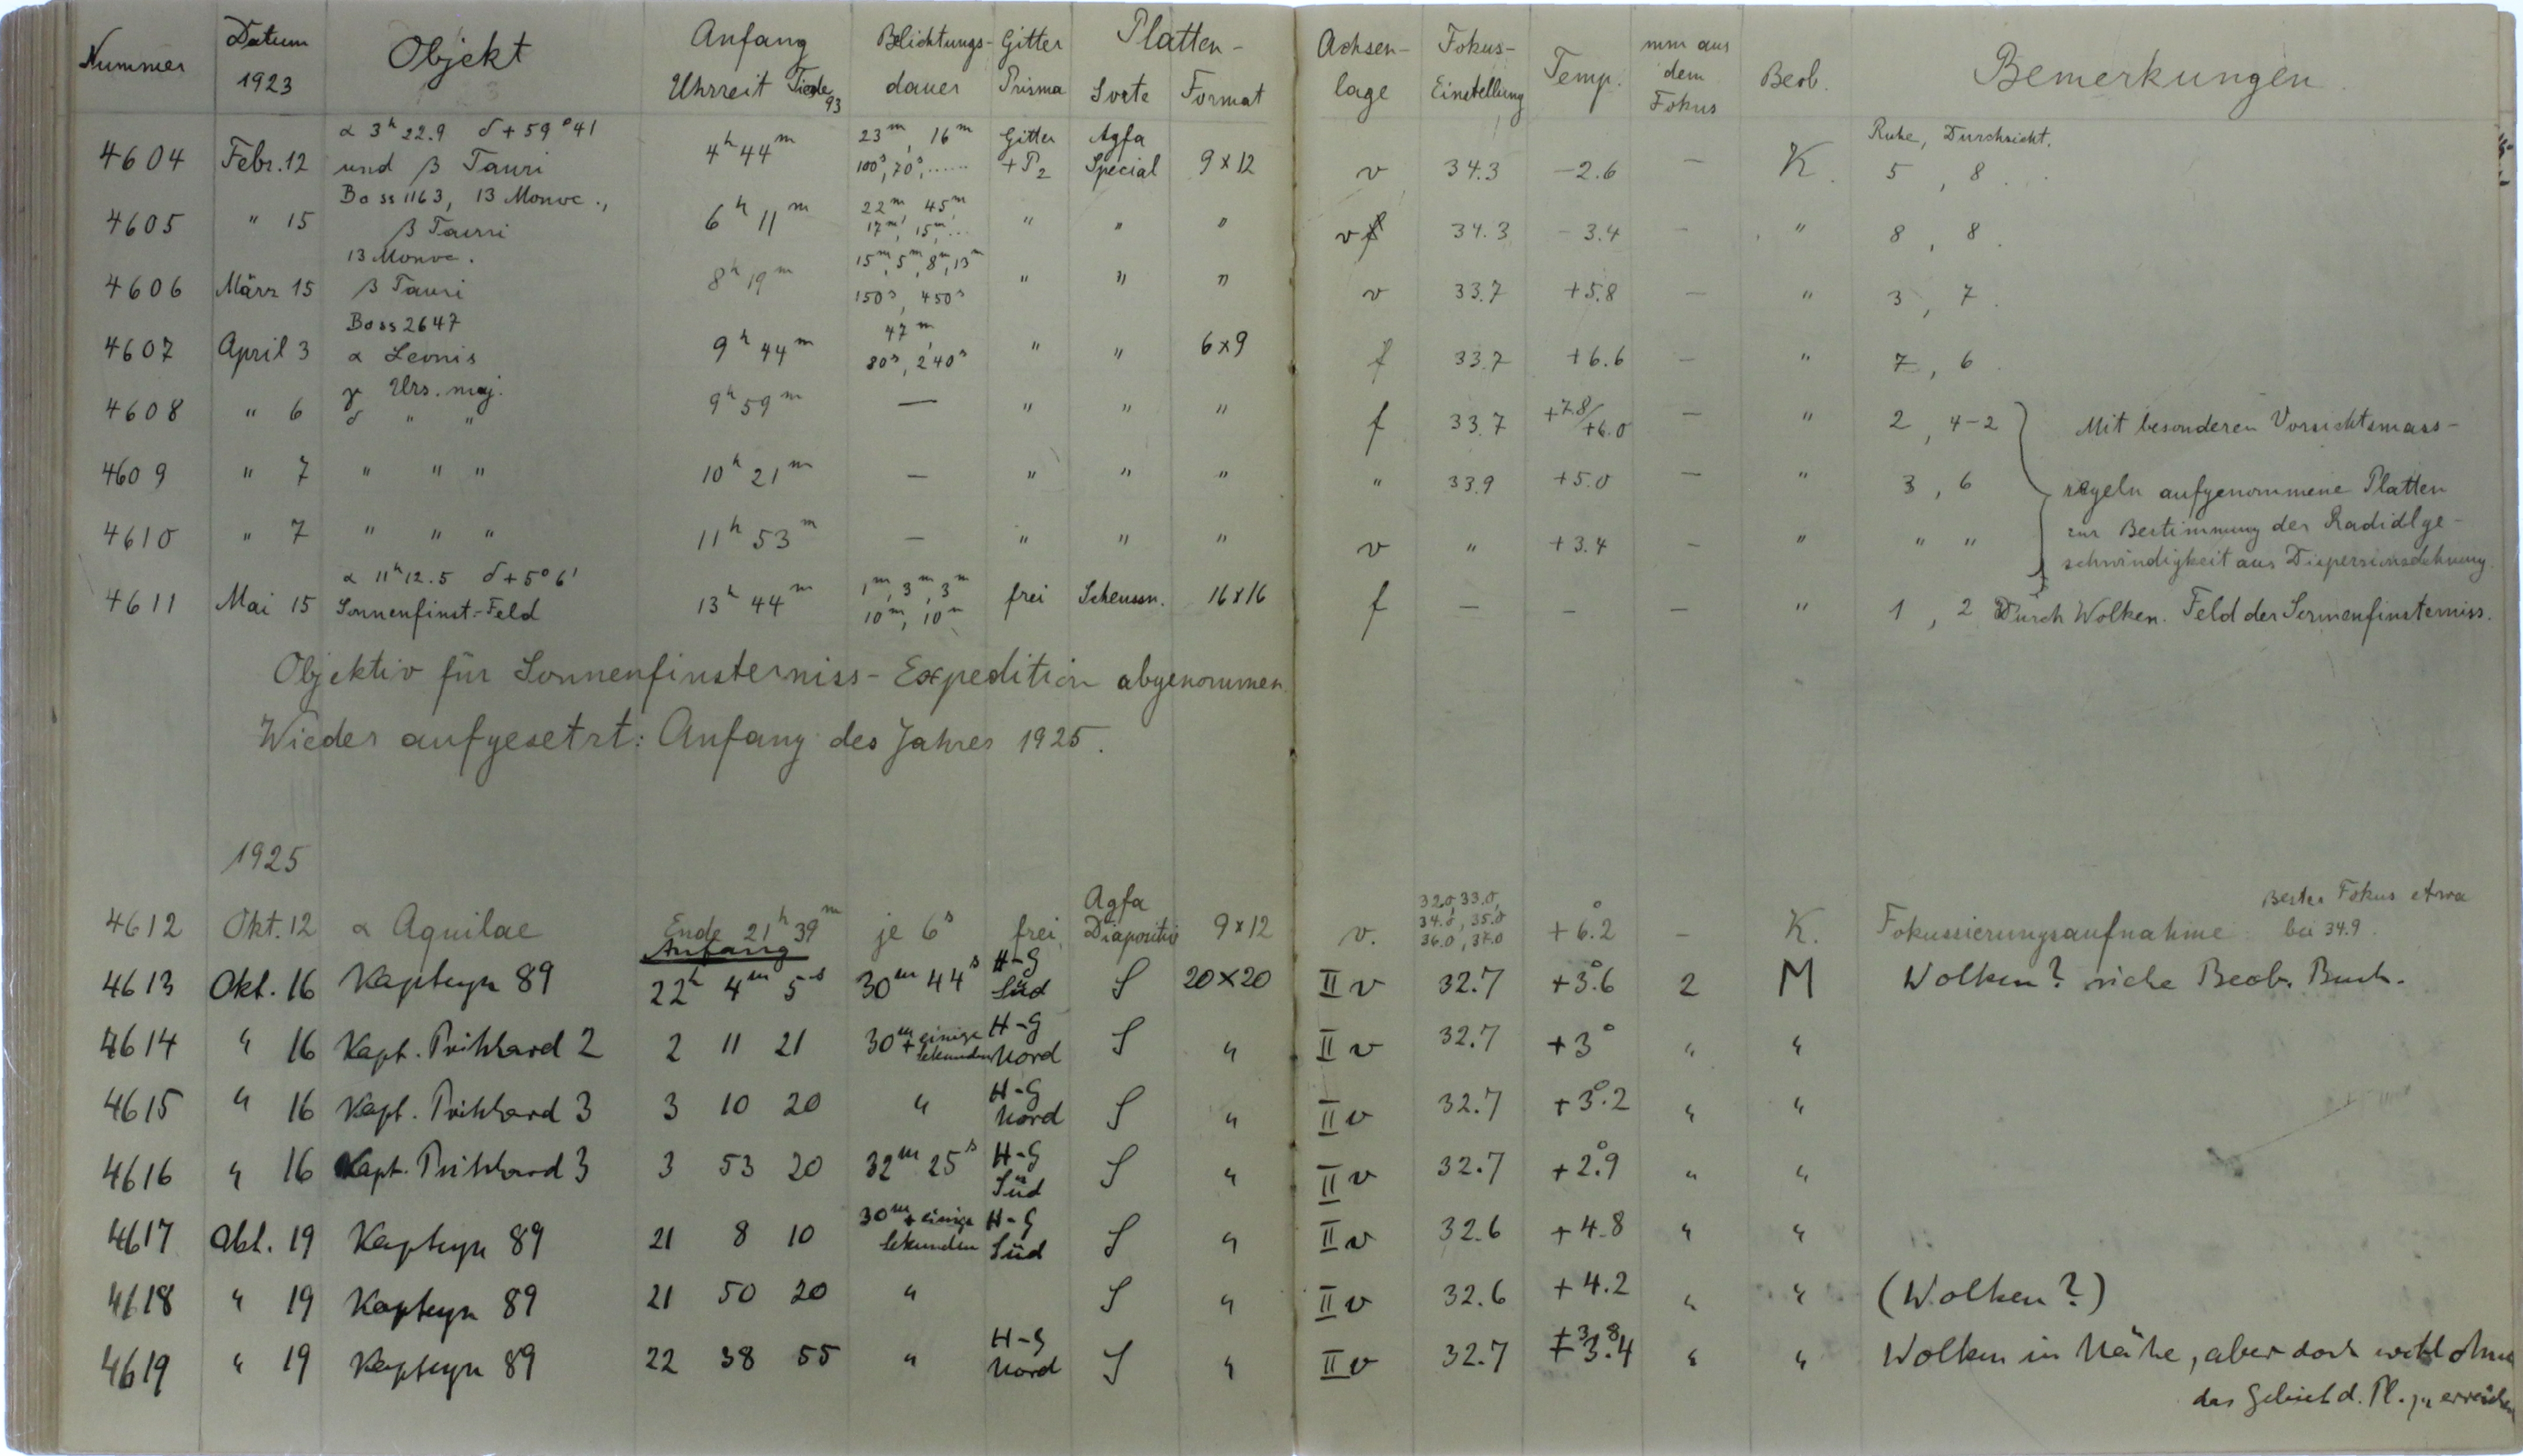 Nummer Datum 1923 Objekt Anfang Uhrzeit Tiede 93 Belichtungs-dauer Gitter Prisma Platten-Sorte Format Achsen-lage Fokus-Einstellung Temp. mm aus dem Fokus Beob. Bemerkungen
Ruhe, Durchsicht.
α 3h 22.9 δ + 59°41 23m, 16m Gitter Agfa
4604 Febr. 12 und β Tauri 4h 44m 100s, 70s, ...... + P2 Special 9 x 12 v 34.3 -2.6 — K. 5, 8.
Boss 1163, 13 Monoc., 22m, 45m,
4605 " 15 β Tauri 6h 11m 17m, 15m, ... " " " v 34.3 - 3.4 — " 8, 8.
13 Monoc. 15m, 5m, 8m, 13m
4606 März 15 β Tauri 8h 19m 150s, 450s " " " v 33.7 +5.8 — " 3, 7.
Boss 2647 47m,
4607 April 3 α Leonis 9h 44m 80s, 240s " " 6x9 f 33.7 +6.6 — " 7, 6
γ Urs. maj.
4608 " 6 δ " " 9h 59m — " " " f 33.7 +7.8/+6.0 — " 2, 4-2 Mit besonderen Vorsichtsmass-
4609 " 7 " " " 10h 21m — " " " " 33.9 +5.0 — " 3, 6 regeln aufgenommene Platten
zur Bestimmung der Radialge-
4610 " 7 " " " 11h 53m — " " " v " +3.4 — " " "
schwindigkeit aus Dispersionsdehnung.
α 11h 12.5 δ + 5°6' 1m, 3m, 3m
4611 Mai 15 Sonnenfinst.-Feld 13h 44m 10m, 10m frei Scheussn. 16x16 f — — — " 1, 2 Durch Wolken. Feld der Sonnenfinsterniss.
Objektiv für Sonnenfinsterniss-Expedition abgenommen
Wieder aufgesetzt: Anfang des Jahres 1925.
1925
Agfa 32.0, 33.0, Bester Fokus etwa
34.0, 35.0
4612 Okt. 12 α Aquilae Ende 21h 39m je 6s frei Diapositiv 9x12 v. 36.0, 37.0 +6°.2 — K. Fokussierungsaufnahme bei 34.9.
Anfang H-G
4613 Okt. 16 Kapteyn 89 22h 4m 5s 30m 44s Süd S 20x20 II v 32.7 +3°.6 2 M Wolken? siehe Beob. Buch.
4614 " 16 Kapt. Prithard 2 2 11 21 30m + einige Sekunden H-G Nord S " II v 32.7 +3° " "
4615 " 16 Kapt. Prithard 3 3 10 20 " H-G Nord S " II v 32.7 +3°.2 " "
4616 " 16 Kapt. Prithard 3 3 53 20 32m 25s H-G Süd S " II v 32.7 +2°.9 " "
4617 Okt. 19 Kapteyn 89 21 8 10 30m + einige Sekunden H-G Süd S " II v 32.6 +4.8 " "
4618 " 19 Kapteyn 89 21 50 20 " S " II v 32.6 +4.2 " " (Wolken?)
4619 " 19 Kapteyn 89 22 38 55 " H-G Nord S " II v 32.7 +3.4 " " Wolken in Nähe, aber doch wohl ohne
das Gebiet d. Pl. zu erreichen